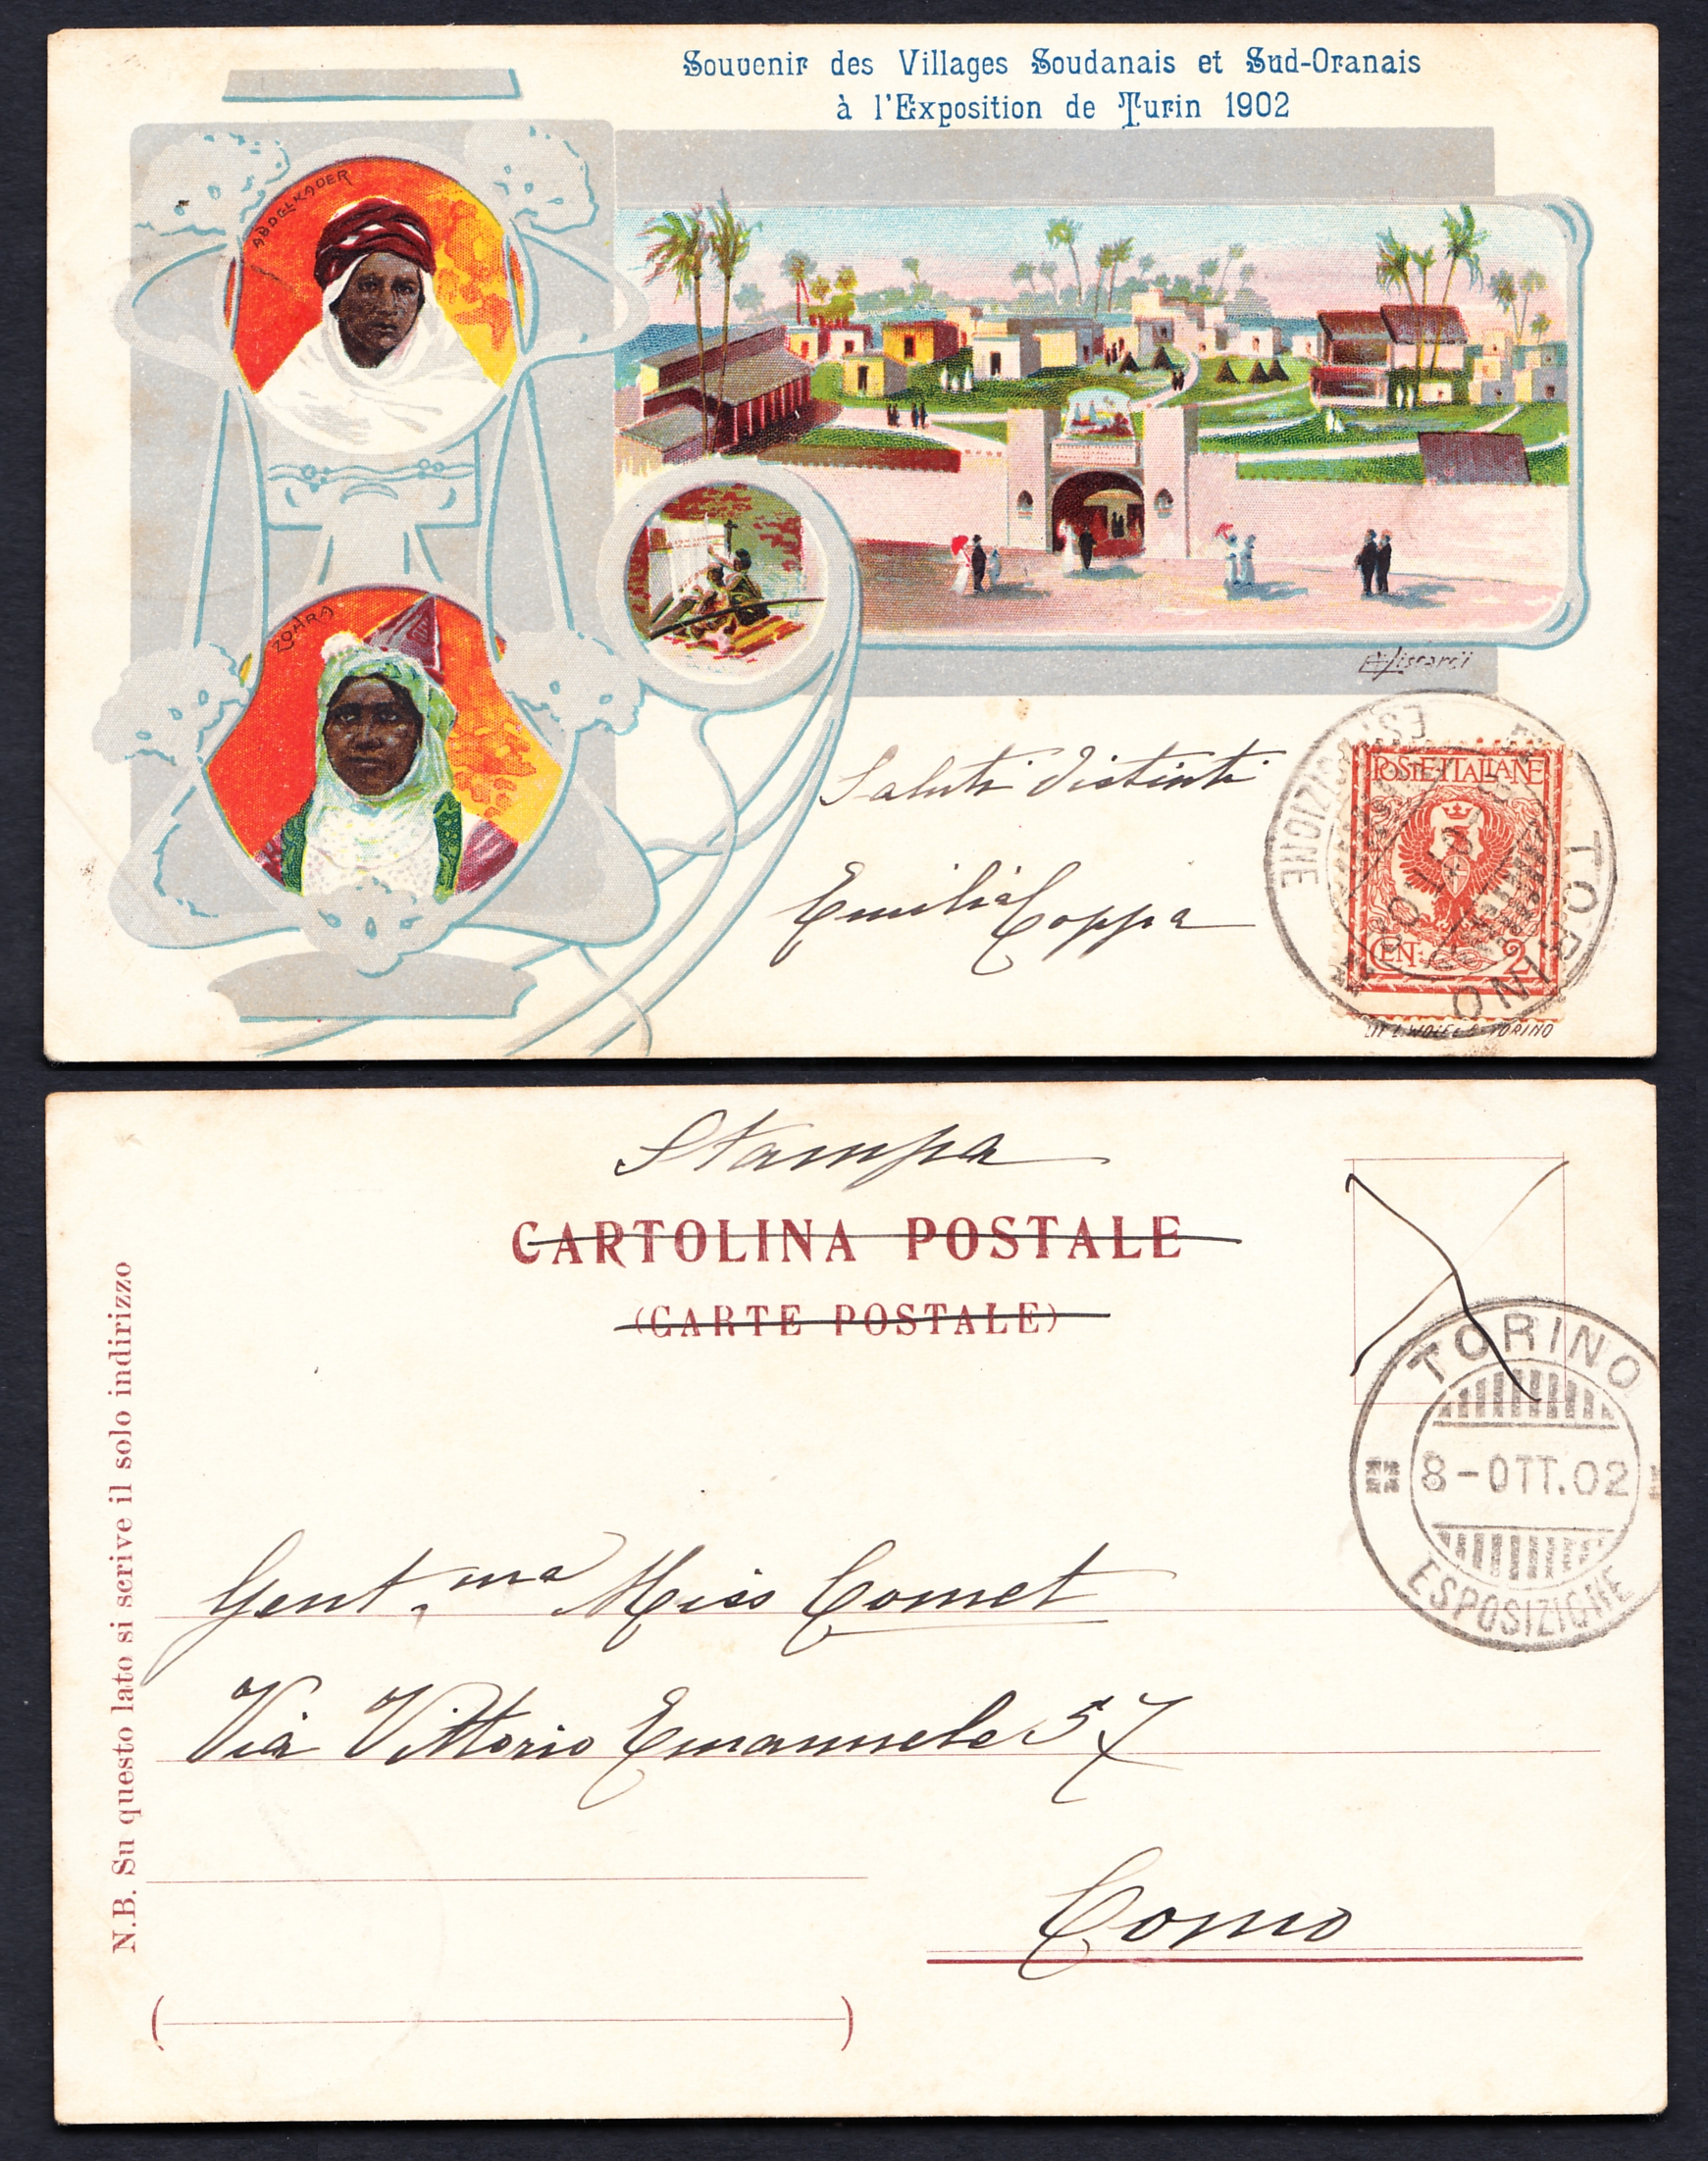 Souvenir des Villages Soudanais et Sud-Oranais
à l'Exposition de Turin 1902
ABDELKADER
ZOHRA
Saluti distinti
Emilia Coppa
POSTE·ITALIANE
CEN. 2
TORINO
ESPOSIZIONE
Stampa
CARTOLINA POSTALE
(CARTE POSTALE)
TORINO
8-OTT.02
ESPOSIZIONE
N.B. Su questo lato si scrive il solo indirizzo
Gent.ma Miss Comet
Via Vittorio Emanuele 57
Como